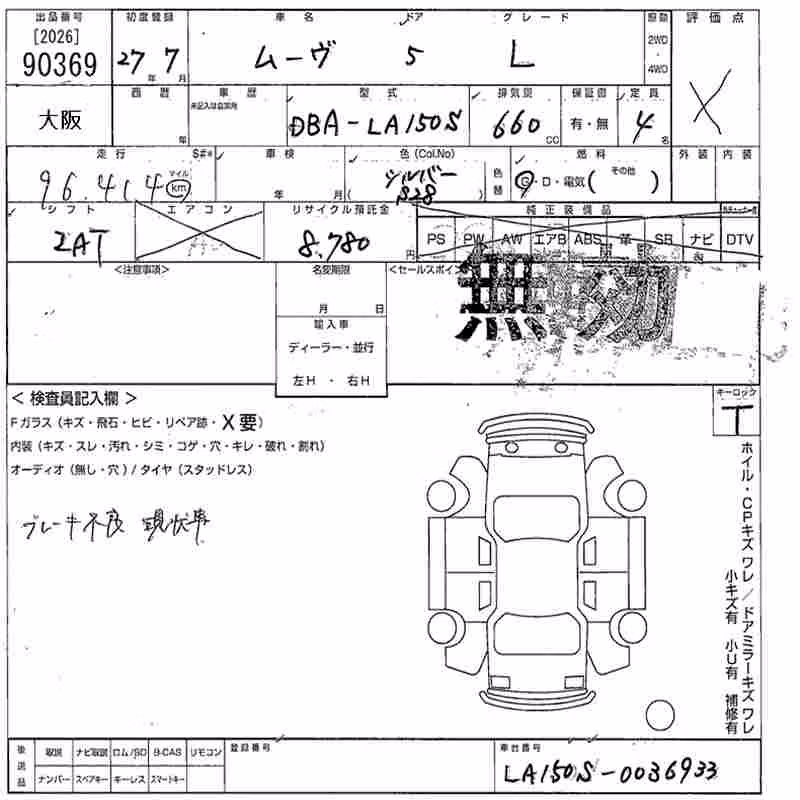 出品番号 初度登録 車名 ドア グレード 駆動 評価点
[2026]
90369 27年 7月 ムーヴ 5 L 2WD・4WD X
大阪 西暦 年 車歴 未記入は自家用 型式 DBA-LA150S 排気量 660cc 保証書 有・無 定員 4名
走行 96,414 マイル km S#* 車検 年 月 色(Col.No) シルバー S28 色替 燃料 G・D・電気( その他 ) 外装 内装
シフト IAT エアコン リサイクル預託金 8,780円 純正装備品
PS PW AW エアB ABS 革 SR ナビ DTV
<注意事項> 名変期限 <セールスポイント
無効
月 日
輸入車
ディーラー・並行
左H・右H
< 検査員記入欄 > キーロック
Fガラス(キズ・飛石・ヒビ・リペア跡・X要) T
内装(キズ・スレ・汚れ・シミ・コゲ・穴・キレ・破れ・割れ)
オーディオ(無し・穴)/タイヤ(スタッドレス)
ブレーキ不良 現状車
ホイル・CPキズ ワレ/ドアミラーキズ ワレ
小キズ有 小U有 補修有
後送品 取説 ナビ取説 ロム/SD B-CAS リモコン 登録番号 車台番号
ナンバー スペアキー キーレス スマートキー LA150S-0036933